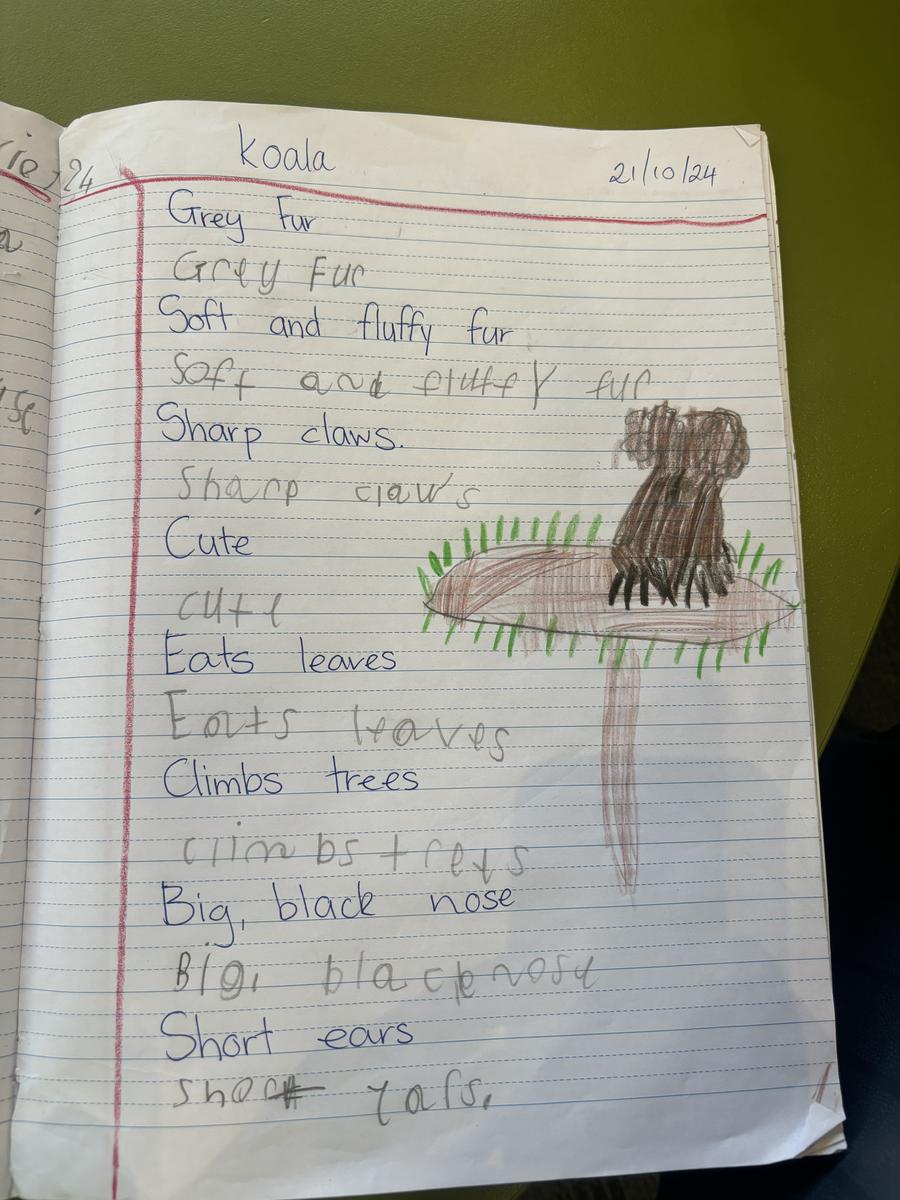 koala 21/10/24
Grey Fur
Grey Fur
Soft and fluffy fur
Soft and fluffy fur
Sharp claws.
Sharp claws
Cute
cute
Eats leaves
Eats leaves
Climbs trees
climbs trees
Big, black nose
Big, black nose
Short ears
short ears.
24